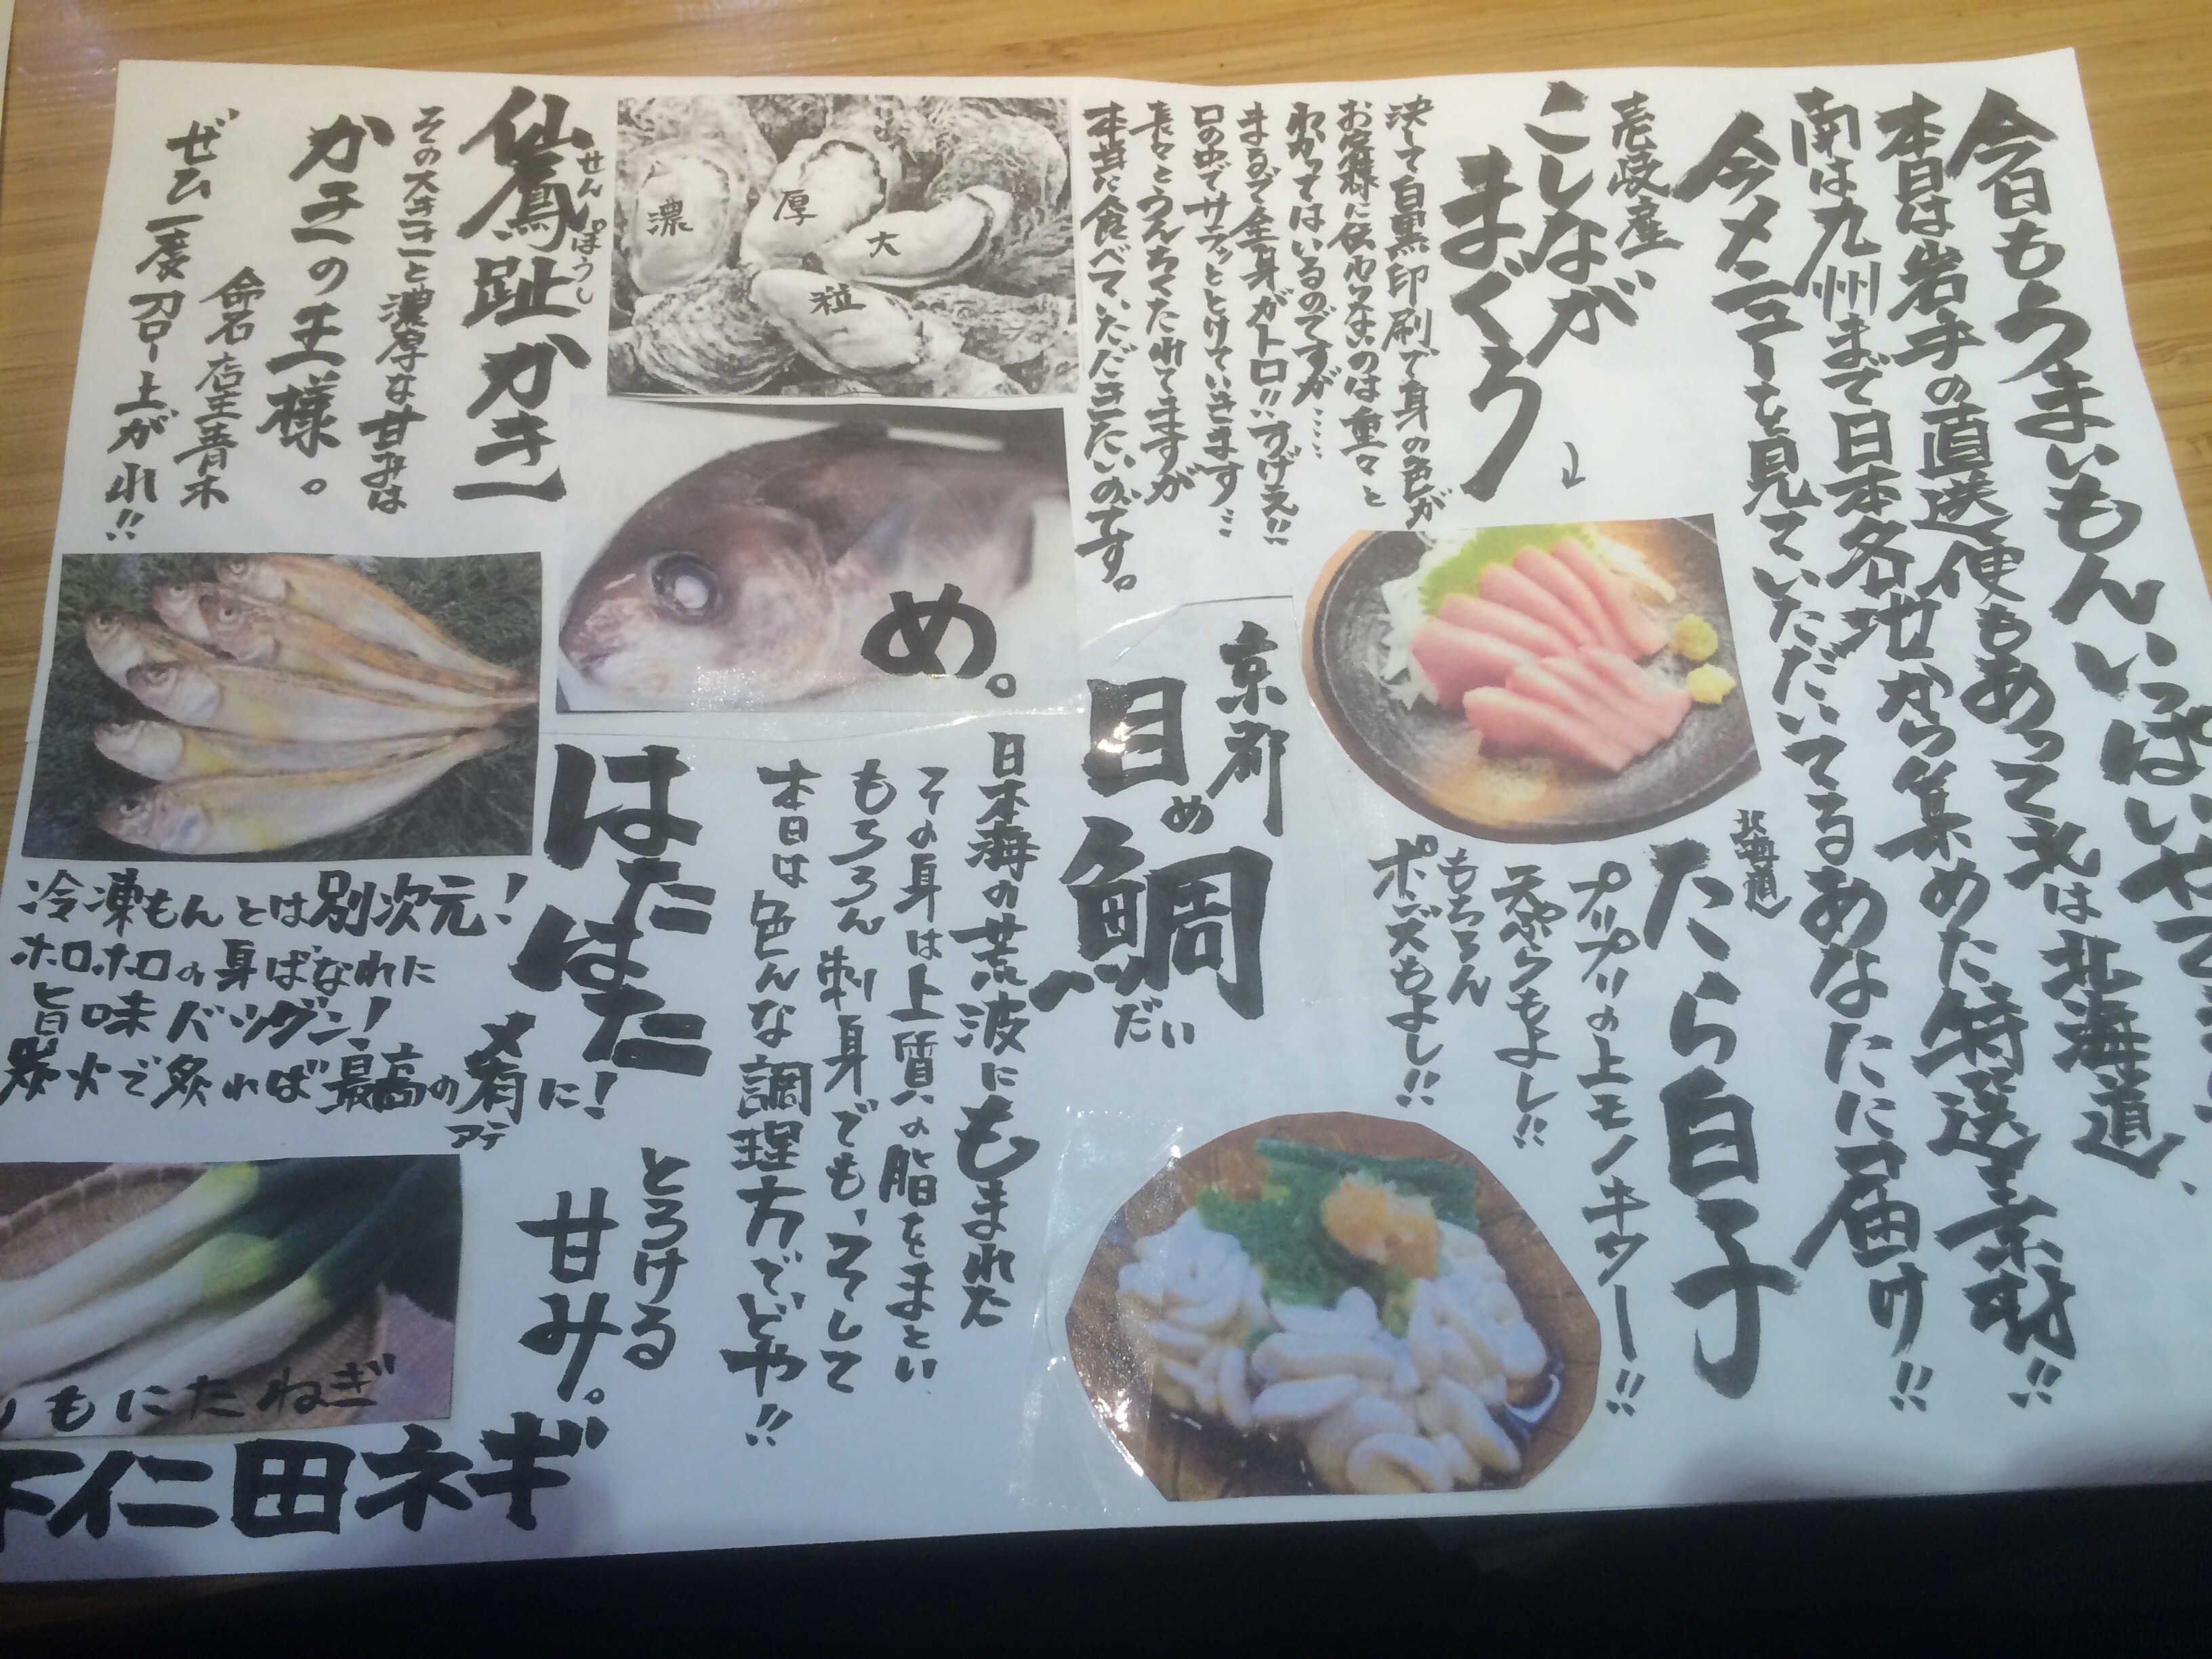 今日もうまいもんいっぱいやで
本日は岩手の直送便もあって北は北海道、
南は九州まで日本各地から集めた特選素材!!
今メニューを見ていただいてるあなたに届け!!
壱岐産
こしなが
まぐろ
決して白黒印刷で身の色が
お客様に伝わらないのは重々と
わかってはいるのですが……
まるで全身がトロ!!すげえ!!
口の中でサラッととけていきます…
長々とうんちくたれてますが
本当に食べていただきたいのです。
北海道
たら白子
プリプリの上モノキター!!
天ぷらもよし!!
もちろん
ポン酢もよし!!
京都
目め鯛だい
め。
日本海の荒波にもまれた
その身は上質の脂をまとい
もちろん刺身でも、そして
本日は色んな調理方でどや!!
濃
厚
大
粒
仙鳳趾かき
せんぽうし
その大きさと濃厚な甘みは
かきの王様。
命名 店主青木
ぜひ一度召し上がれ!!
はたはた
冷凍もんとは別次元!
ホロホロの身ばなれに
旨味バツグン!
炭火で炙れば最高の肴に!
アテ
とろける
甘み。
しもにたねぎ
下仁田ネギ